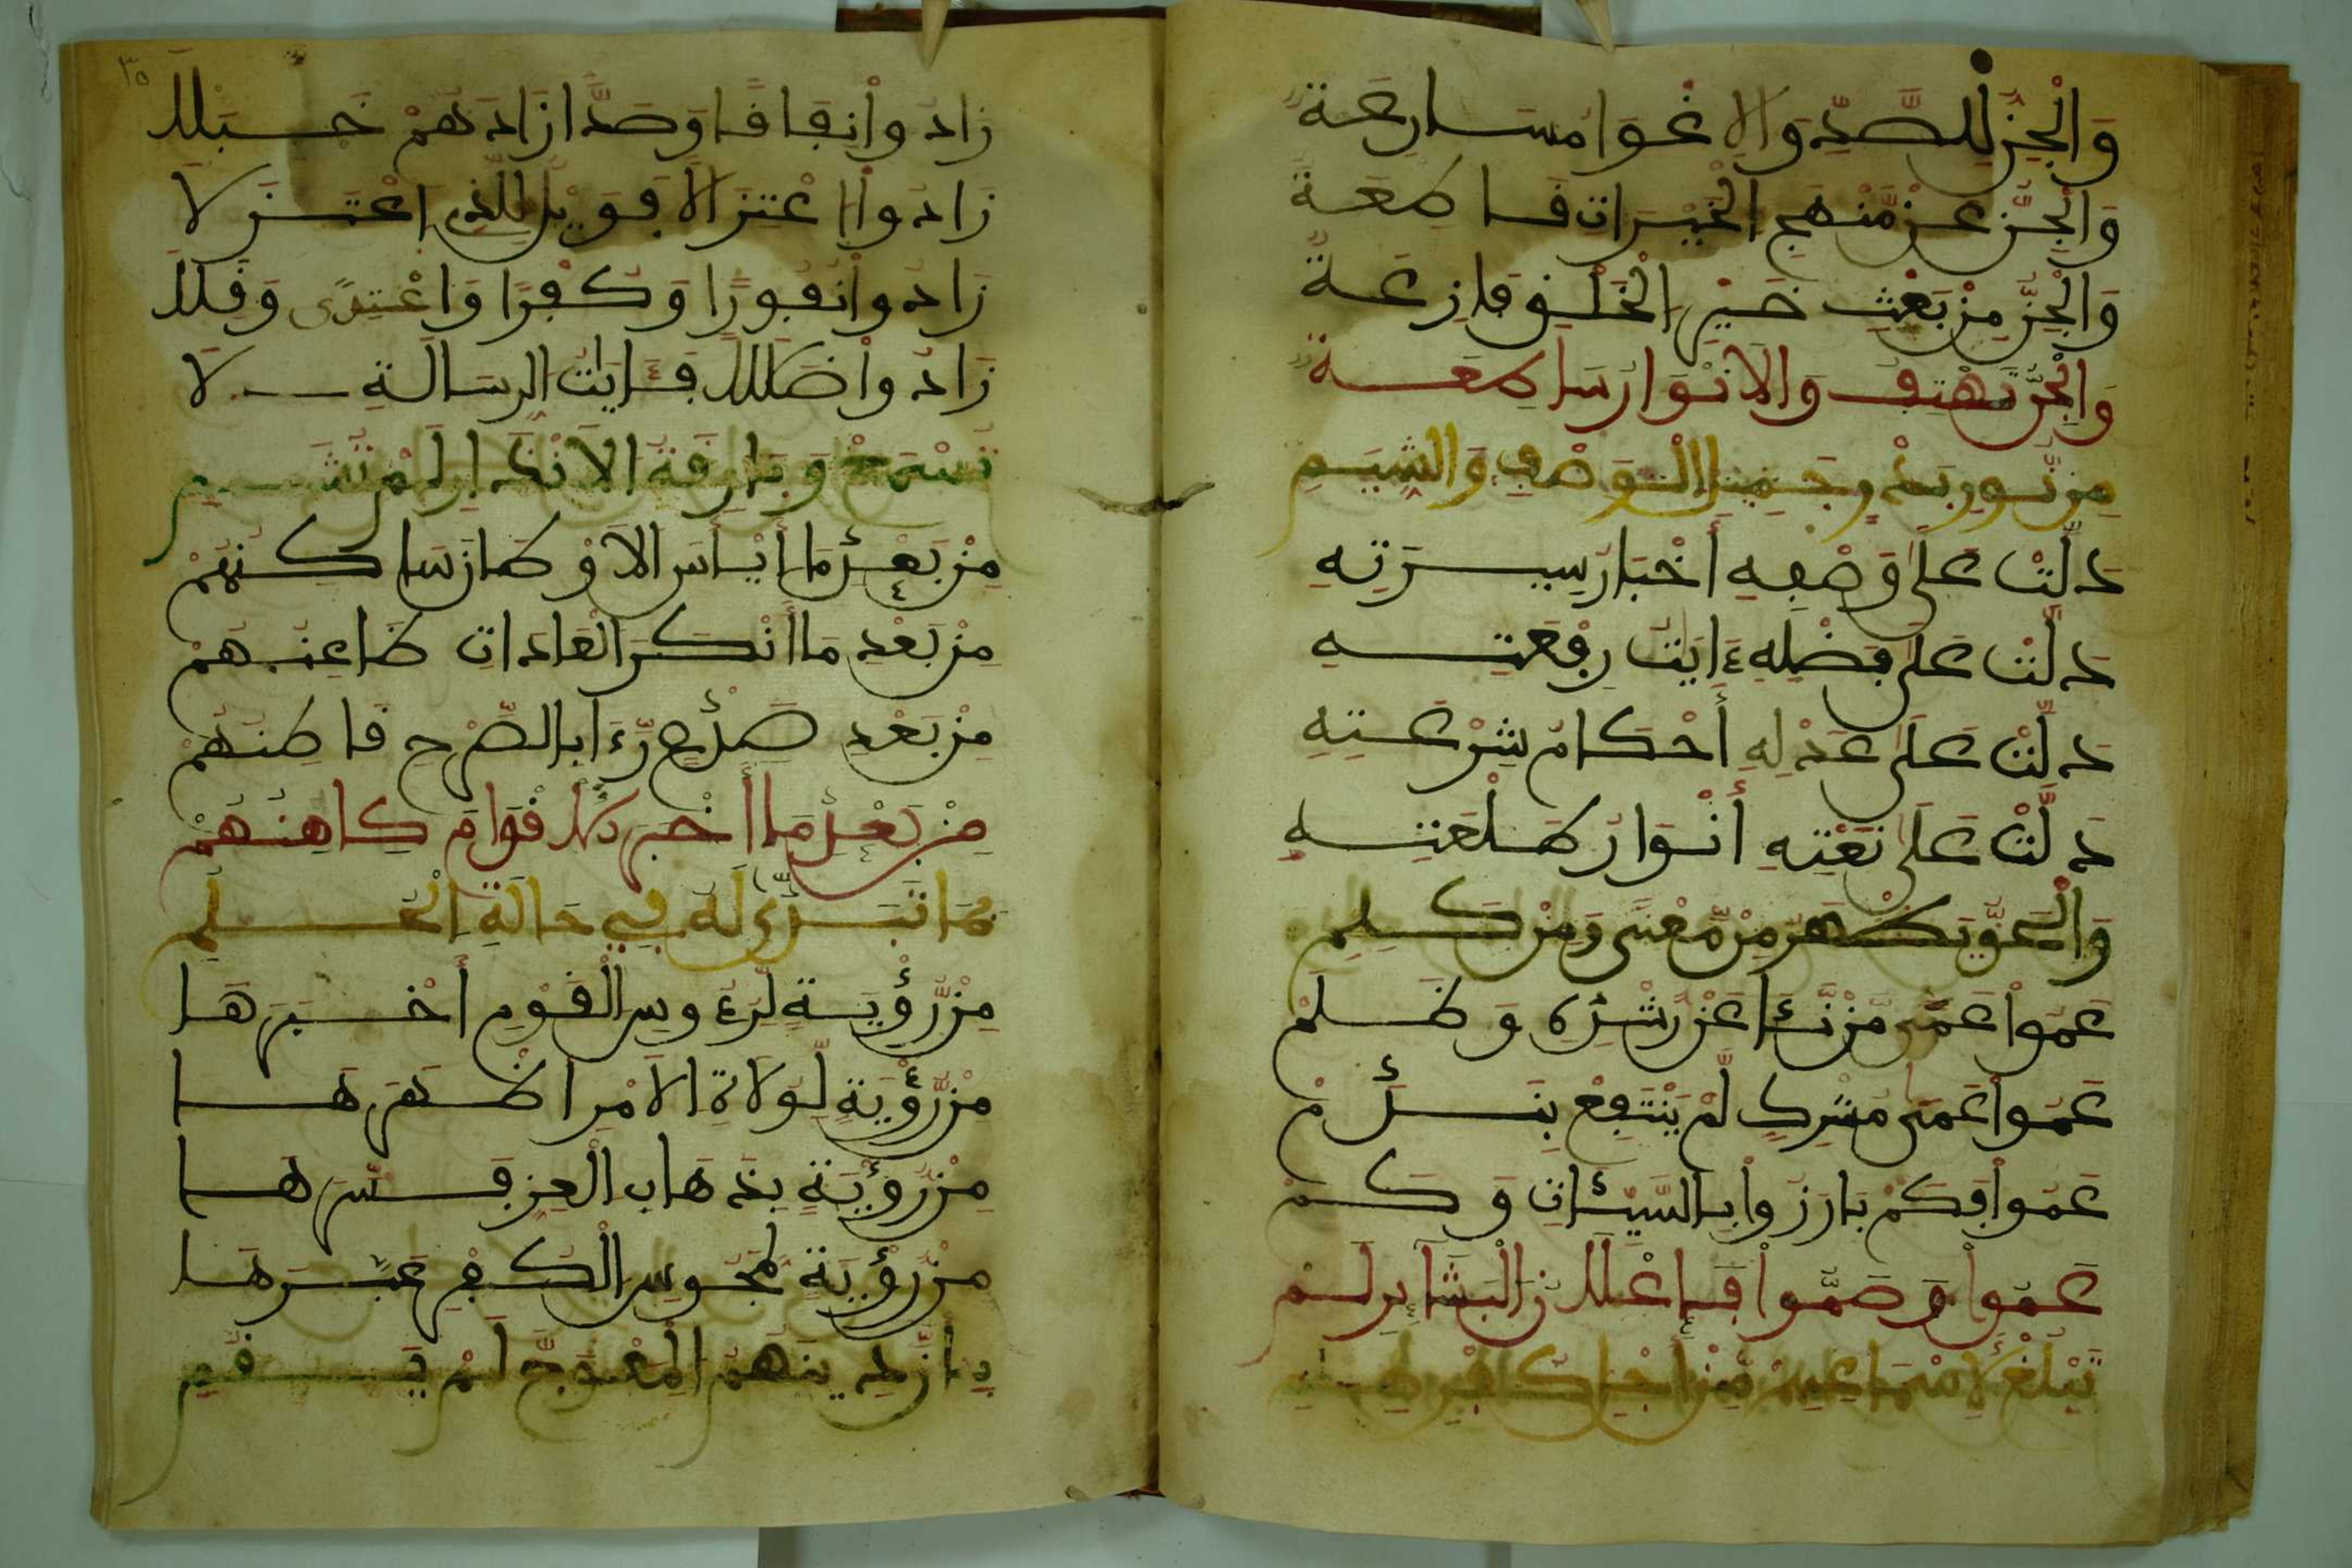 وَالْجِنُّ لِلصَّدِّ وَالِاغْوَا مسَارِعَةٌ
وَالْجِنُّ عَنْ مَّنْهَجِ الْخَيْرَاتِ قَاطِعَةٌ
وَالْجِنُّ مِنْ بَعْثِ خَيْرِ الْخَلْقِ فَازِعَةٌ
وَالْجِنُّ تَهْتِفُ وَالَانْوَارُ سَاطِعَةٌ
مِن نُّورِ جَمِيلِ الْوَصْفِ وَالشِّيَمِ
دَلَّتْ عَلَى وَصْفِهِ أَخْبَارُ سِيرَتِهِ
دَلَّتْ عَلَى فَضْلِهِ ءَايَتُ رِفْعَتِهِ
دَلَّتْ عَلَى عَدْلِهِ أَحْكَامُ شِرْعَتِهِ
دَلَّتْ عَلَى نَعْتِهِ أَنْوَارُ طَلْعَتِهِ
وَالْحَقُّ يَظْهَرُ مِن مَّعْنَى وَمِنْ كَلِمِ
عَمُوا عَمَى مَن نَّئَا عَن رُّشْدِهِ وَظَلَمْ
عَمُوا عَمَى مُشْرِكٍ لَّمْ يَنْتَفِعْ بِنَدَمْ
عَمُوا فَكَمْ بَارَزُوا بِالسَّيِّئَاتِ وَكَمْ
عَمُوا وَصَمُّوا فَإِعْلَانُ الْبَشَائِرِ لَمْ
تَبْلُغْ لِأَسْمَاعِهِمْ مِّنْ أَجْلِ كُفْرِهِمِ
٣٥
زَادُوا نِفَاقًا وَصَدًّا زَادَهُمْ خَبَلَا
زَادُوا اعْتِزَالًا فَوَيْلٌ لِّلَّذِي اعْتَزَلَا
زَادُوا نُفُورًا وَكُفْرًا وَاعْتِدًى وَقِلَا
زَادُوا ضَلَالًا فَئَايَاتُ الرِّسَالَةِ لَا
تُسْمَعْ وَبَارِقَةُ الِانْذَارِ لَمْ تُشَمِ
مِنْ بَعْدِ مَا أَيْأَسَ الَاوْطَانَ سَاكِنُهُمْ
مِنْ بَعْدِ مَا أَنْكَرَ الْعَادَاتِ ظَاعِنُهُمْ
مِنْ بَعْدِ صَدْعٍ رَّءَا بِالصَّرْحِ قَاطِنُهُمْ
مِنْ بَعْدِ مَا أَخْبَرَ الَاقْوَامَ كَاهِنُهُمْ
بِمَا تَبَدَّى لَهُ فِي حَالَةِ الْحُلُمِ
مِن رُّؤْيَةٍ لِّرُءُوسِ الْقَوْمِ أَخْبَرَهَا
مِن رُّؤْيَةٍ لِّوُلَاةِ الَامْرِ اظْهَرَهَا
مِن رُّؤْيَةٍ بِذَهَابِ الْعِزِّ فَسَّرَهَا
مِن رُّؤْيَةٍ لِمَجُوسِ الْكُفْرِ عَبَّرَهَا
بِأَنَّ دِينَهُمُ الْمُعْوَجَّ لَمْ يَقُمِ